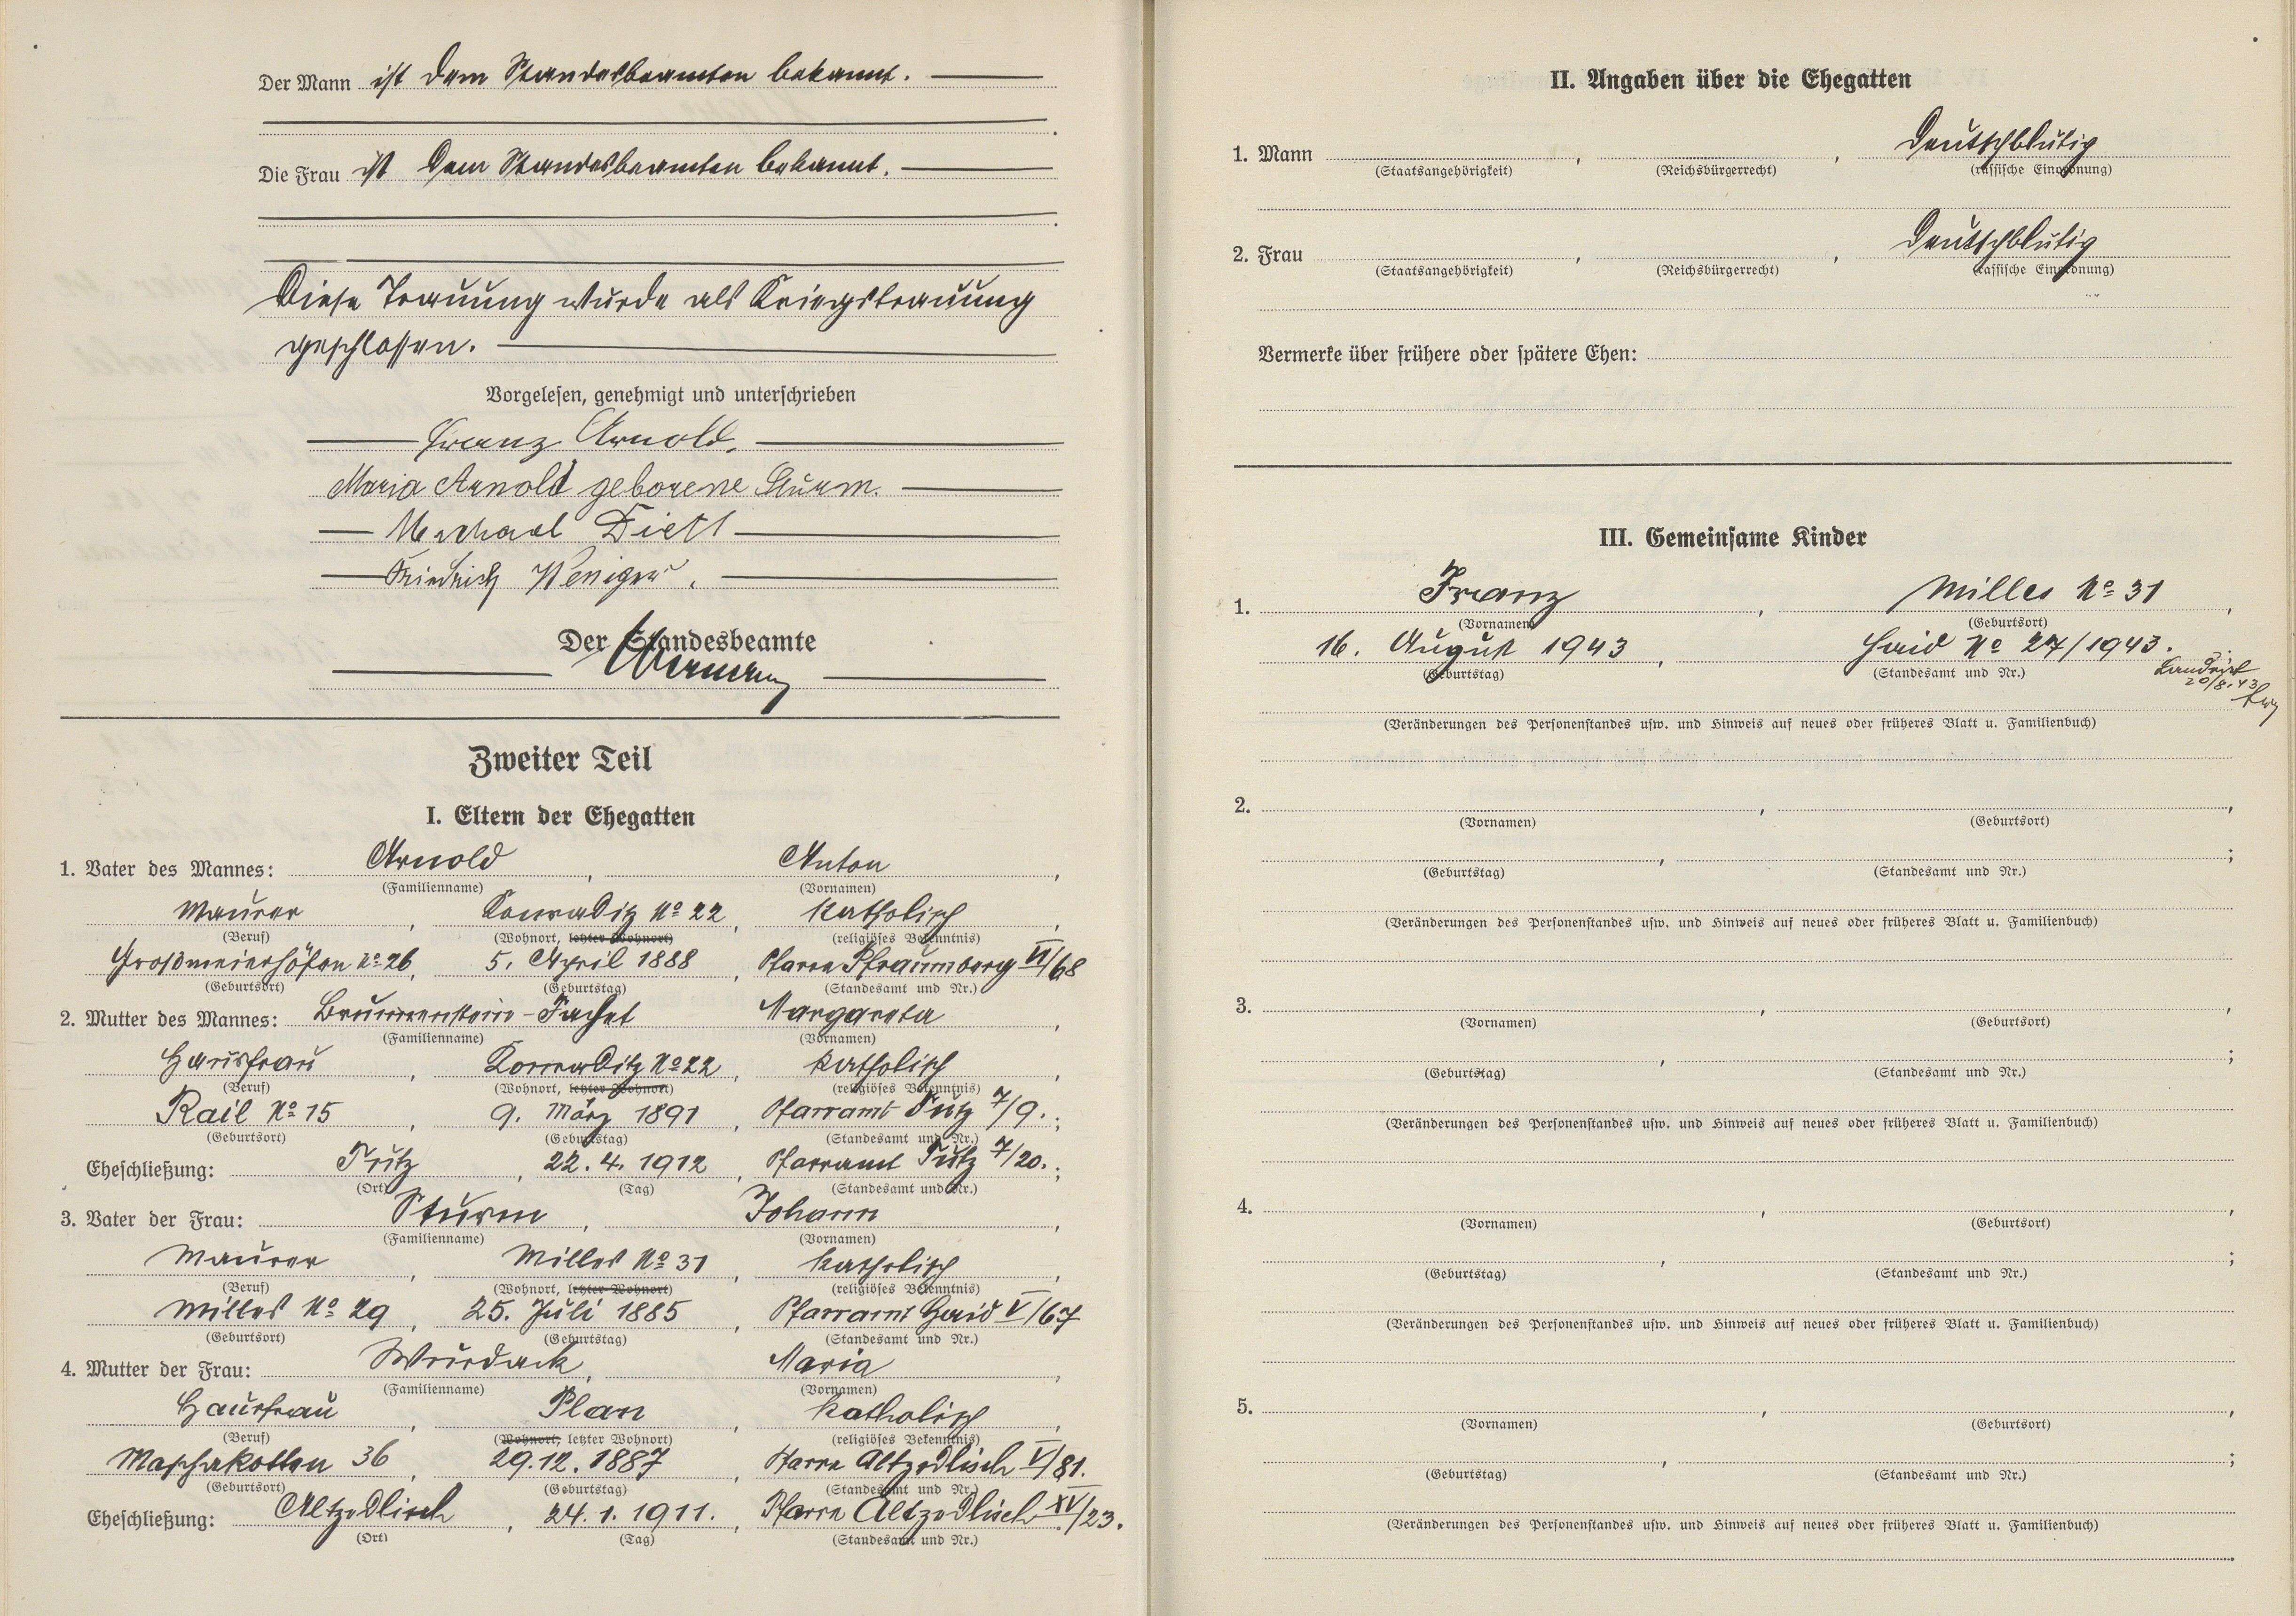 Der Mann ist dem Standesbeamten bekannt.
Die Frau ist dem Standesbeamten bekannt.
Diese Trauung wurde als Kriegstrauung
geschlossen.
Vorgelesen, genehmigt und unterschrieben
Franz Arnold.
Maria Arnold geborene Sturm.
Michael Dietl
Friedrich Weniger.
Der Standesbeamte
Zweiter Teil
I. Eltern der Ehegatten
1. Vater des Mannes: Arnold, Anton,
(Familienname) (Vornamen)
Maurer, Konraditz No 22, katholisch,
(Beruf) (Wohnort, letzter Wohnort) (religiöses Bekenntnis)
Großmeierhöfen No 26, 5. April 1888, Pfarre Pfraumberg VI/68
(Geburtsort) (Geburtstag) (Standesamt und Nr.)
2. Mutter des Mannes: Brunnenstein-Fachet Margareta,
(Familienname) (Vornamen)
Hausfrau, Konraditz No 22, katholisch,
(Beruf) (Wohnort, letzter Wohnort) (religiöses Bekenntnis)
Rail No 15, 9. März 1891, Pfarramt Tutz 7/9.;
(Geburtsort) (Geburtstag) (Standesamt und Nr.)
Eheschließung: Tutz, 22. 4. 1912, Pfarramt Tutz 7/20.;
(Ort) (Tag) (Standesamt und Nr.)
3. Vater der Frau: Sturm, Johann,
(Familienname) (Vornamen)
Maurer, Milles No 31, katholisch,
(Beruf) (Wohnort, letzter Wohnort) (religiöses Bekenntnis)
Milles No 29, 25. Juli 1885, Pfarramt Haid V/67
(Geburtsort) (Geburtstag) (Standesamt und Nr.)
4. Mutter der Frau: Wurdack, Maria,
(Familienname) (Vornamen)
Hausfrau, Plan, katholisch,
(Beruf) (Wohnort, letzter Wohnort) (religiöses Bekenntnis)
Maschakotten 36, 29.12.1887, Pfarre Altzedlisch V/81.
(Geburtsort) (Geburtstag) (Standesamt und Nr.)
Eheschließung: Altzedlisch, 24. 1. 1911., Pfarre Altzedlisch XV/23.
(Ort) (Tag) (Standesamt und Nr.)
II. Angaben über die Ehegatten
1. Mann , , deutschblütig
(Staatsangehörigkeit) (Reichsbürgerrecht) (rassische Einordnung)
2. Frau , , deutschblütig
(Staatsangehörigkeit) (Reichsbürgerrecht) (rassische Einordnung)
Vermerke über frühere oder spätere Ehen:
III. Gemeinsame Kinder
1. Franz, Milles No 31,
(Vornamen) (Geburtsort)
16. August 1943, Haid No 27/1943.
(Geburtstag) (Standesamt und Nr.)
20/8.43
(Veränderungen des Personenstandes usw. und Hinweis auf neues oder früheres Blatt u. Familienbuch)
2. , ,
(Vornamen) (Geburtsort)
, ;
(Geburtstag) (Standesamt und Nr.)
(Veränderungen des Personenstandes usw. und Hinweis auf neues oder früheres Blatt u. Familienbuch)
3. , ,
(Vornamen) (Geburtsort)
, ;
(Geburtstag) (Standesamt und Nr.)
(Veränderungen des Personenstandes usw. und Hinweis auf neues oder früheres Blatt u. Familienbuch)
4. , ,
(Vornamen) (Geburtsort)
, ;
(Geburtstag) (Standesamt und Nr.)
(Veränderungen des Personenstandes usw. und Hinweis auf neues oder früheres Blatt u. Familienbuch)
5. , ,
(Vornamen) (Geburtsort)
, ;
(Geburtstag) (Standesamt und Nr.)
(Veränderungen des Personenstandes usw. und Hinweis auf neues oder früheres Blatt u. Familienbuch)